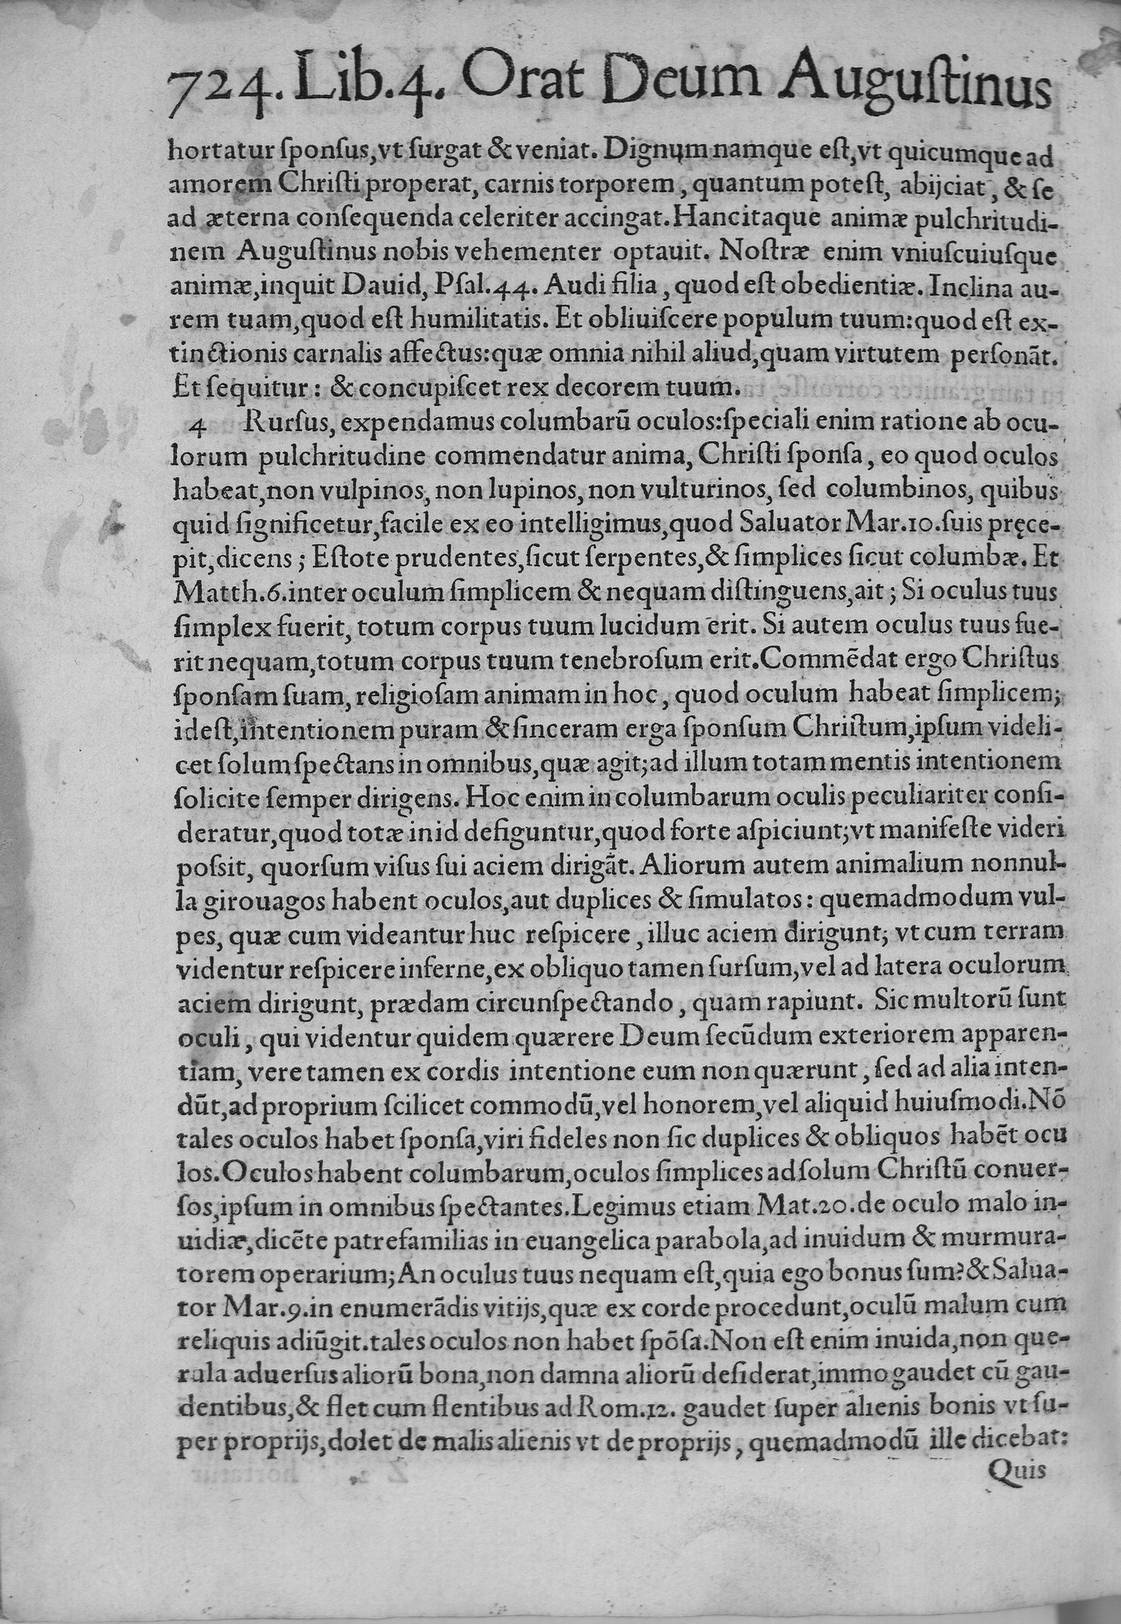 724. Lib.4. Orat Deum Auguſtinus
hortatur ſponſus, vt ſurgat & veniat. Dignum namque eſt, vt quicumque ad
amorem Chriſti properat, carnis torporem, quantum poteſt, abijciat, & ſe
ad æterna conſequenda celeriter accingat. Hanc itaque animæ pulchritudi-
nem Auguſtinus nobis vehementer optauit. Noſtræ enim vniuſcuiuſque
animæ, inquit Dauid, Pſal.44. Audi filia, quod eſt obedientiæ. Inclina au-
rem tuam, quod eſt humilitatis. Et obliuiſcere populum tuum: quod eſt ex-
tinctionis carnalis affectus: quæ omnia nihil aliud, quam virtutem perſonāt.
Et ſequitur: & concupiſcet rex decorem tuum.
4 Rurſus, expendamus columbarū oculos: ſpeciali enim ratione ab ocu-
lorum pulchritudine commendatur anima, Chriſti ſponſa, eo quod oculos
habeat, non vulpinos, non lupinos, non vulturinos, ſed columbinos, quibus
quid ſignificetur, facile ex eo intelligimus, quod Saluator Mar.10. ſuis pręce-
pit, dicens; Eſtote prudentes, ſicut ſerpentes, & ſimplices ſicut columbæ. Et
Matth.6. inter oculum ſimplicem & nequam diſtinguens, ait; Si oculus tuus
ſimplex fuerit, totum corpus tuum lucidum erit. Si autem oculus tuus fue-
rit nequam, totum corpus tuum tenebroſum erit. Commēdat ergo Chriſtus
ſponſam ſuam, religioſam animam in hoc, quod oculum habeat ſimplicem;
ideſt, intentionem puram & ſinceram erga ſponſum Chriſtum, ipſum videli-
cet ſolum ſpectans in omnibus, quæ agit; ad illum totam mentis intentionem
ſolicite ſemper dirigens. Hoc enim in columbarum oculis peculiariter conſi-
deratur, quod totæ in id defiguntur, quod forte aſpiciunt; vt manifeſte videri
poſsit, quorſum viſus ſui aciem dirigāt. Aliorum autem animalium nonnul-
la girouagos habent oculos, aut duplices & ſimulatos: quemadmodum vul-
pes, quæ cum videantur huc reſpicere, illuc aciem dirigunt; vt cum terram
videntur reſpicere inferne, ex obliquo tamen ſurſum, vel ad latera oculorum
aciem dirigunt, prædam circunſpectando, quam rapiunt. Sic multorū ſunt
oculi, qui videntur quidem quærere Deum ſecūdum exteriorem apparen-
tiam, vere tamen ex cordis intentione eum non quærunt, ſed ad alia inten-
dūt, ad proprium ſcilicet commodū, vel honorem, vel aliquid huiuſmodi. Nō
tales oculos habet ſponſa, viri fideles non ſic duplices & obliquos habēt ocu
los. Oculos habent columbarum, oculos ſimplices ad ſolum Chriſtū conuer-
ſos, ipſum in omnibus ſpectantes. Legimus etiam Mat.20. de oculo malo in-
uidiæ, dicēte patrefamilias in euangelica parabola, ad inuidum & murmura-
torem operarium; An oculus tuus nequam eſt, quia ego bonus ſum? & Salua-
tor Mar.9. in enumerādis vitijs, quæ ex corde procedunt, oculū malum cum
reliquis adiūgit. tales oculos non habet ſpōſa. Non eſt enim inuida, non que-
rula aduerſus aliorū bona, non damna aliorū deſiderat, immo gaudet cū gau-
dentibus, & flet cum flentibus ad Rom.12. gaudet ſuper alienis bonis vt ſu-
per proprijs, dolet de malis alienis vt de proprijs, quemadmodū ille dicebat:
Quis